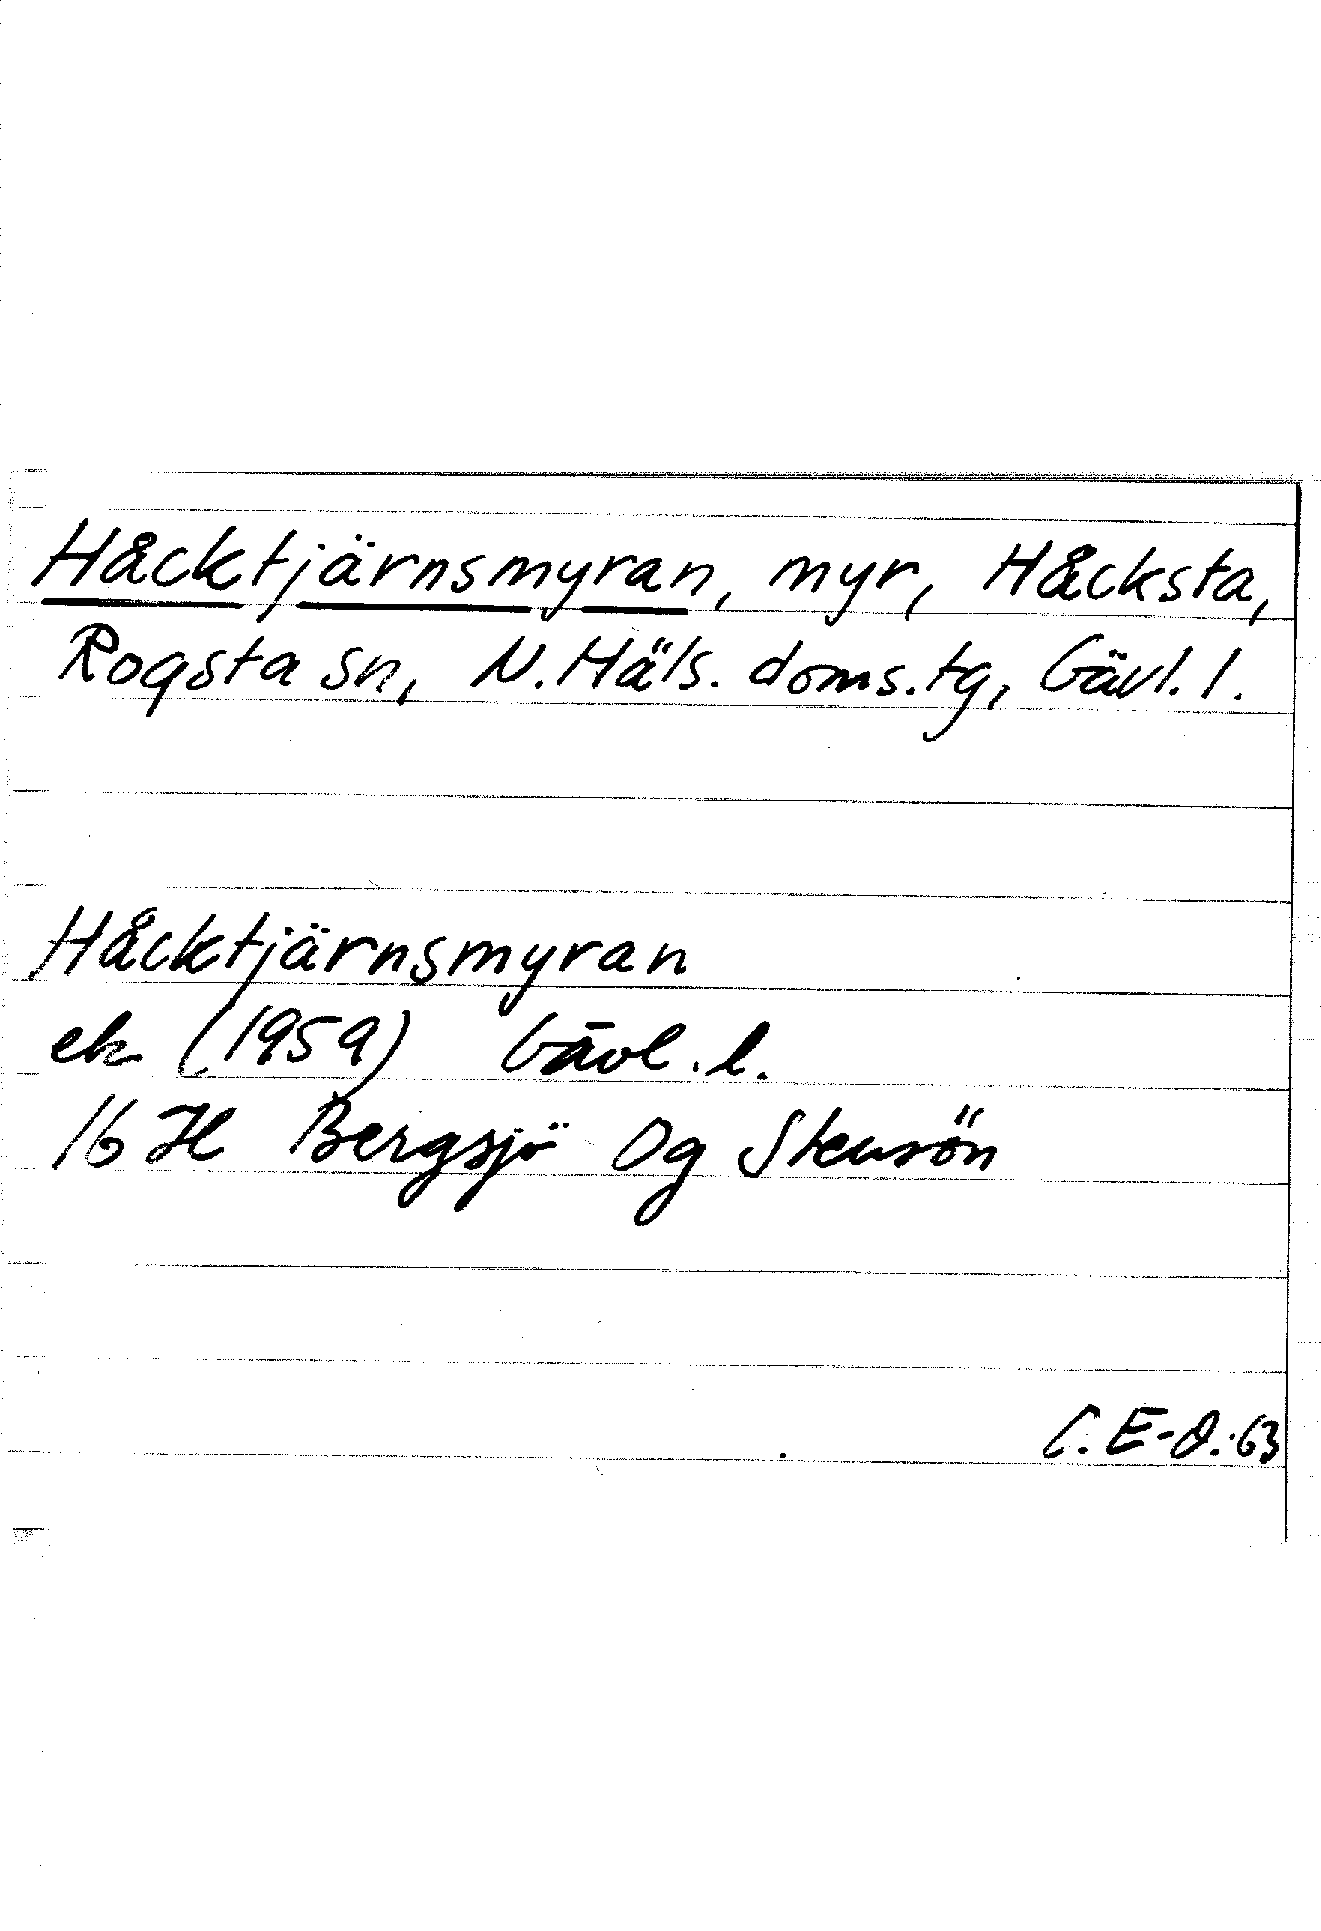 Håcktjärnsmyran, myr, Håcksta,
Rogsta sn, N. Häls. doms.tg, Gävl. l.
Håcktjärnsmyran
ek (1959) Gävl. l.
16 H Bergsjö 0g Stensön
C. E-O. 63